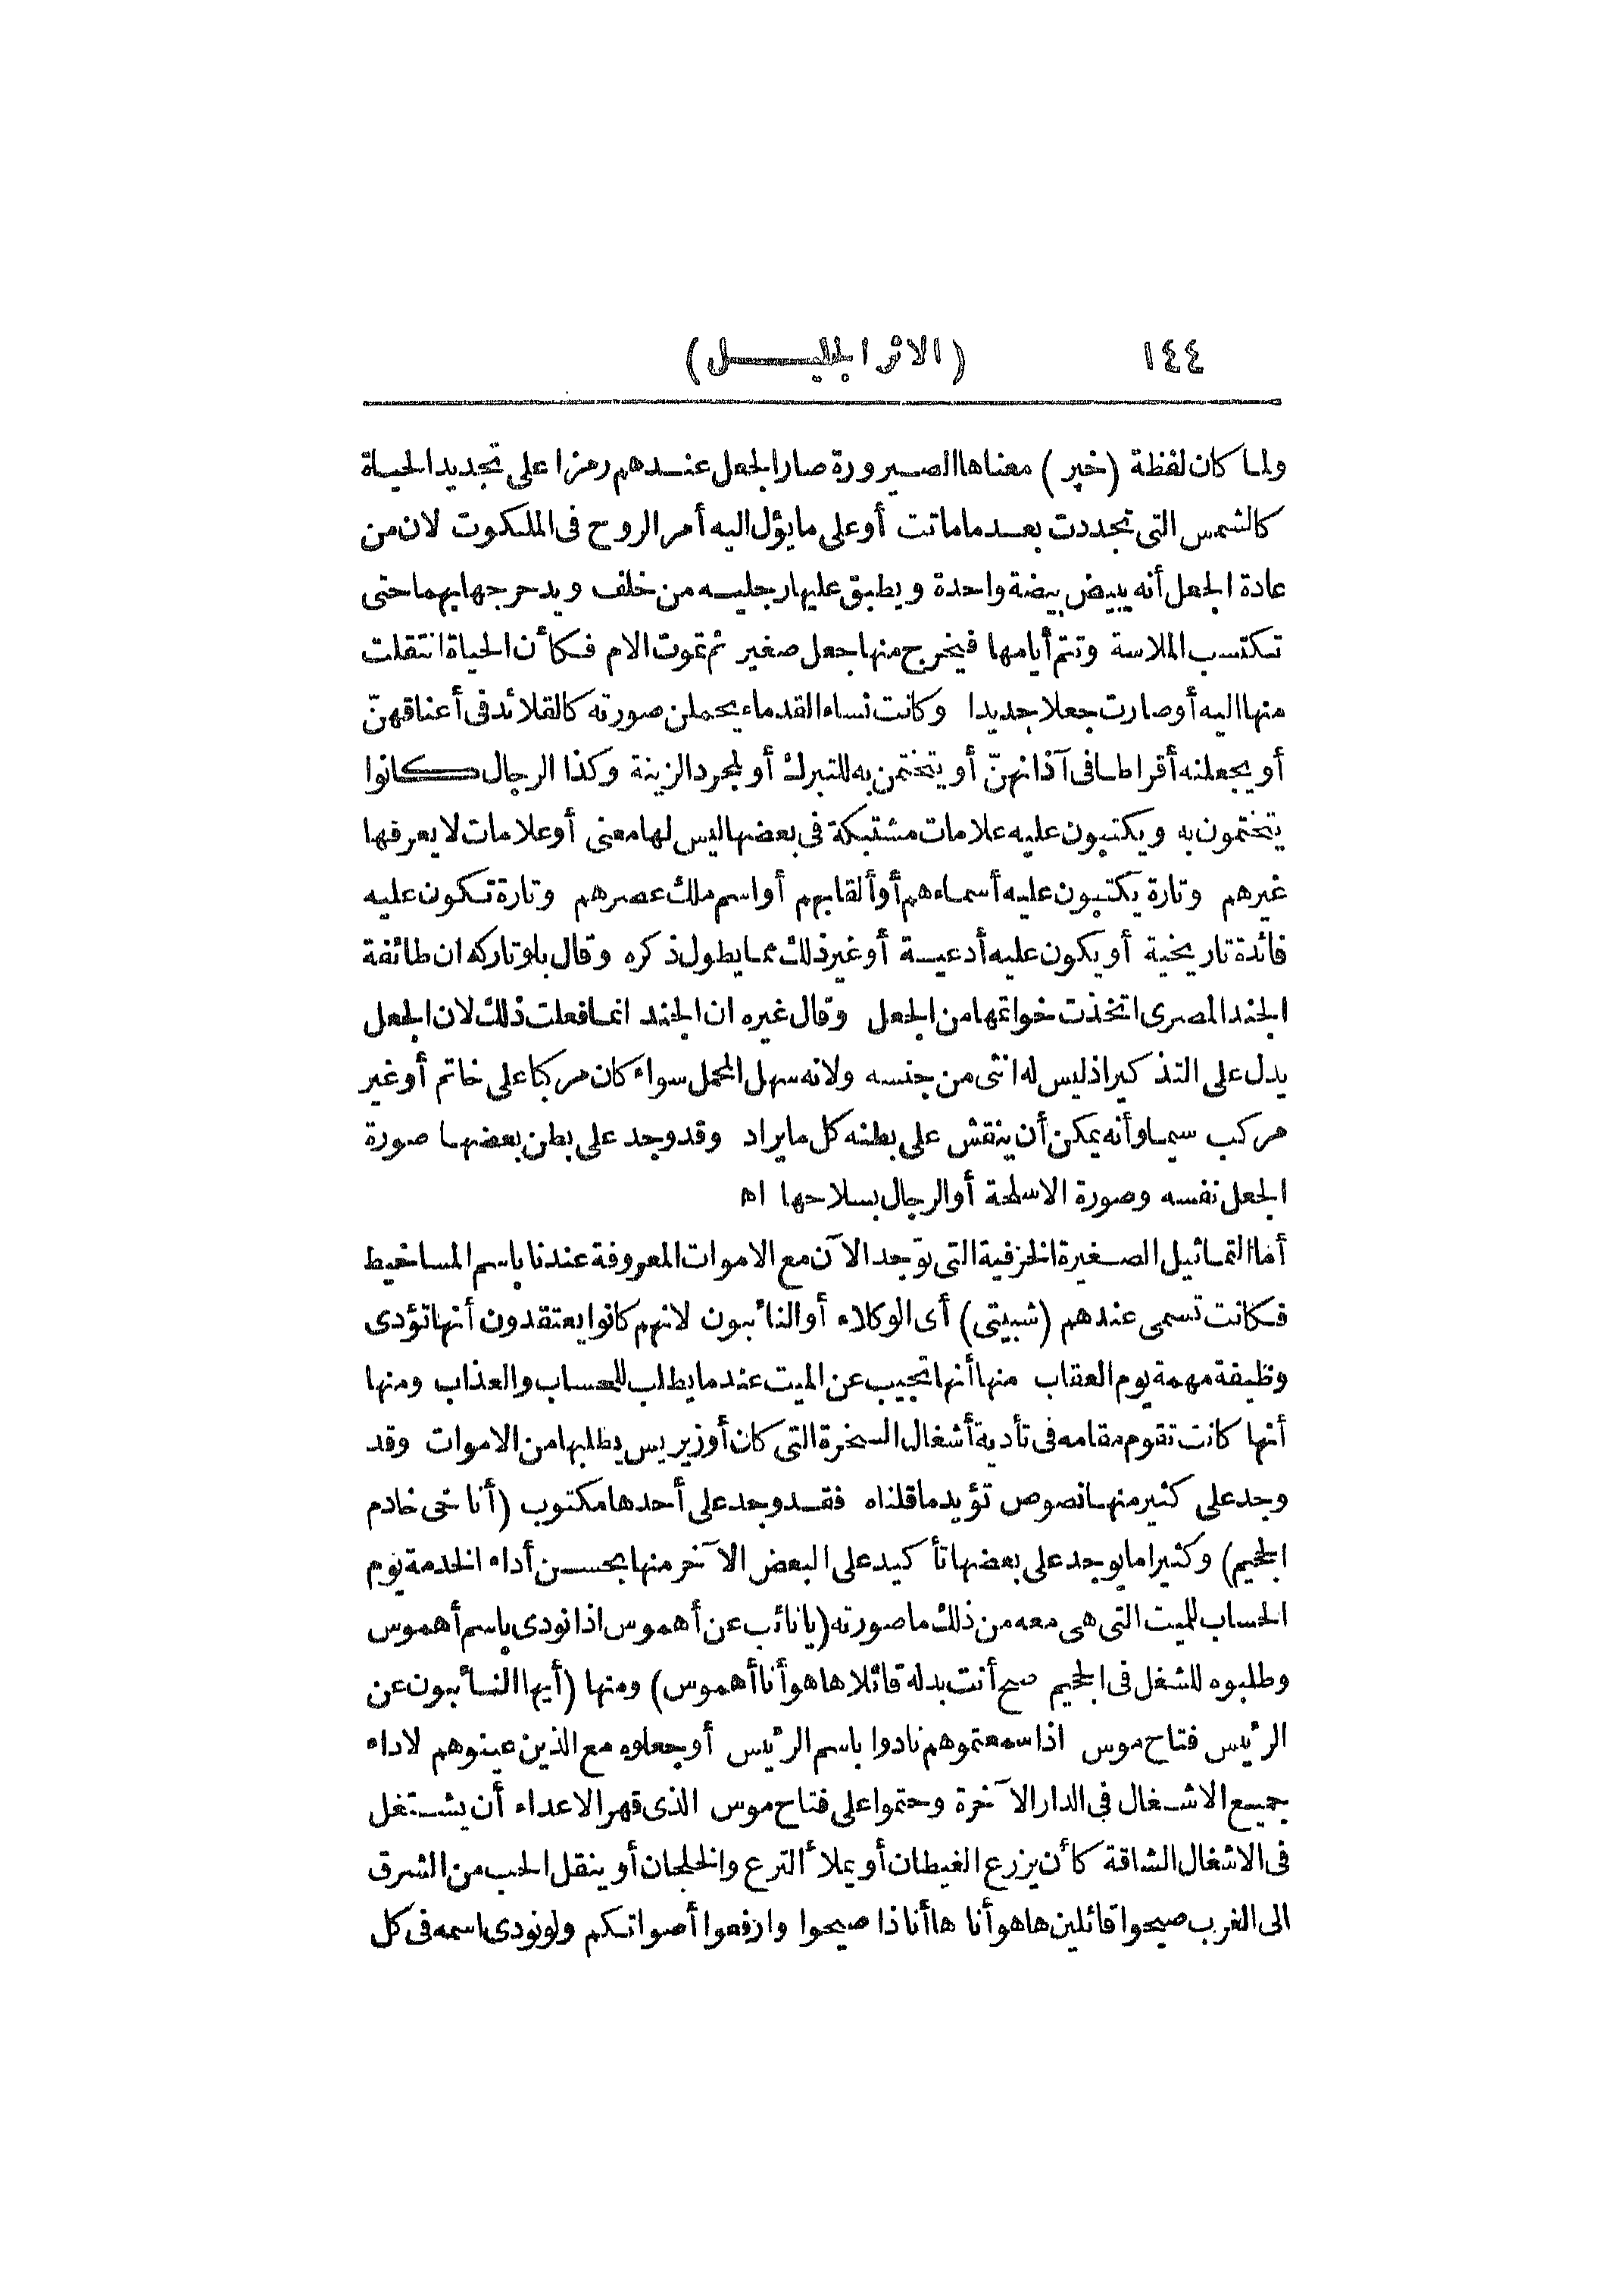 ١٤٤ (الاثر الجليل)
ولما كان لفظة (خپر) معناها الصيرورة صار الجعل عندهم رمزا على تجديد الحياة
كالشمس التى تجددت بعد ما ماتت أو على ما يؤل اليه أمر الروح فى الملكوت لان من
عادة الجعل أنه يبيض بيضة واحدة ويطبق عليها رجليه من خلف ويدحرجها بهما حتى
تكتسب الملاسة وتتم أيامها فيخرج منها جعل صغير ثم تموت الام فكأن الحياة انتقلت
منها اليه أو صارت جعلا جديدا وكانت نساء القدماء يحملن صورته كالقلائد فى أعناقهنّ
أو يجعلنه أقراطا فى آذانهنّ أو يتختمن به للتبرك أو لمجرد الزينة وكذا الرجال كانوا
يتختمون به ويكتبون عليه علامات مشتبكة فى بعضها ليس لها معنى أو علامات لا يعرفها
غيرهم وتارة يكتبون عليه أسماءهم أو ألقابهم أو اسم ملك عصرهم وتارة تكون عليه
فائدة تاريخية أو يكون عليه أدعية أو غير ذلك مما يطول ذكره وقال بلوتاركه ان طائفة
الجند المصرى اتخذت خواتمها من الجعل وقال غيره ان الجند انما فعلت ذلك لان الجعل
يدل على التذكير اذ ليس له انثى من جنسه ولانه سهل المحمل سواء كان مركبا على خاتم أو غير
مركب سيما وأنه يمكن أن ينقش على بطنه كل ما يراد وقد وجد على بطن بعضها صورة
الجعل نفسه وصورة الاسلحة أو الرجال بسلاحها اه
أما التماثيل الصغيرة الخزفية التى توجد الآن مع الاموات المعروفة عندنا باسم المساخيط
فكانت تسمى عندهم (شبيتى) أى الوكلاء أو النائبون لانهم كانوا يعتقدون أنها تؤدى
وظيفة مهمة يوم العقاب منها أنها تجيب عن الميت عندما يطلب للحساب والعذاب ومنها
أنها كانت تقوم مقامه فى تأدية أشغال السخرة التى كان أوزيريس يطلبها من الاموات وقد
وجد على كثير منها نصوص تؤيد ما قلناه فقد وجد على أحدها مكتوب (أنا خى خادم
الجحيم) وكثيرا ما يوجد على بعضها تأكيد على البعض الآخر منها بحسن أداء الخدمة يوم
الحساب للميت التى هى معه من ذلك ما صورته (يا نائب عن أهموس اذا نودى باسم أهموس
وطلبوه للشغل فى الجحيم صح أنت بدله قائلا ها هو أنا أهموس) ومنها (أيها النائبون عن
الرئيس فتاح موس اذا سمعتموهم نادوا باسم الرئيس أو جعلوه مع الذين عينوهم لاداء
جميع الاشغال فى الدار الآخرة وحتموا على فتاح موس الذى قهر الاعداء أن يشتغل
فى الاشغال الشاقة كأن يزرع الغيطان أو يملأ الترع والخلجان أو ينقل الحب من الشرق
الى الغرب صيحوا قائلين ها هو أنا ها أنا ذا صيحوا وارفعوا أصواتكم ولو نودى باسمه فى كل